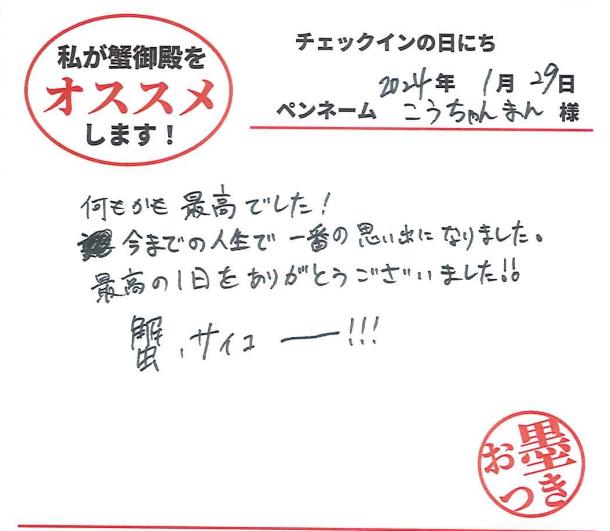 私が蟹御殿を
オススメ
します！
チェックインの日にち
2024年 1月 29日
ペンネーム こうちゃんまん 様
何もかも最高でした！
今までの人生で一番の思い出になりました。
最高の1日をありがとうございました!!
蟹、サイコー!!!
お墨
つき